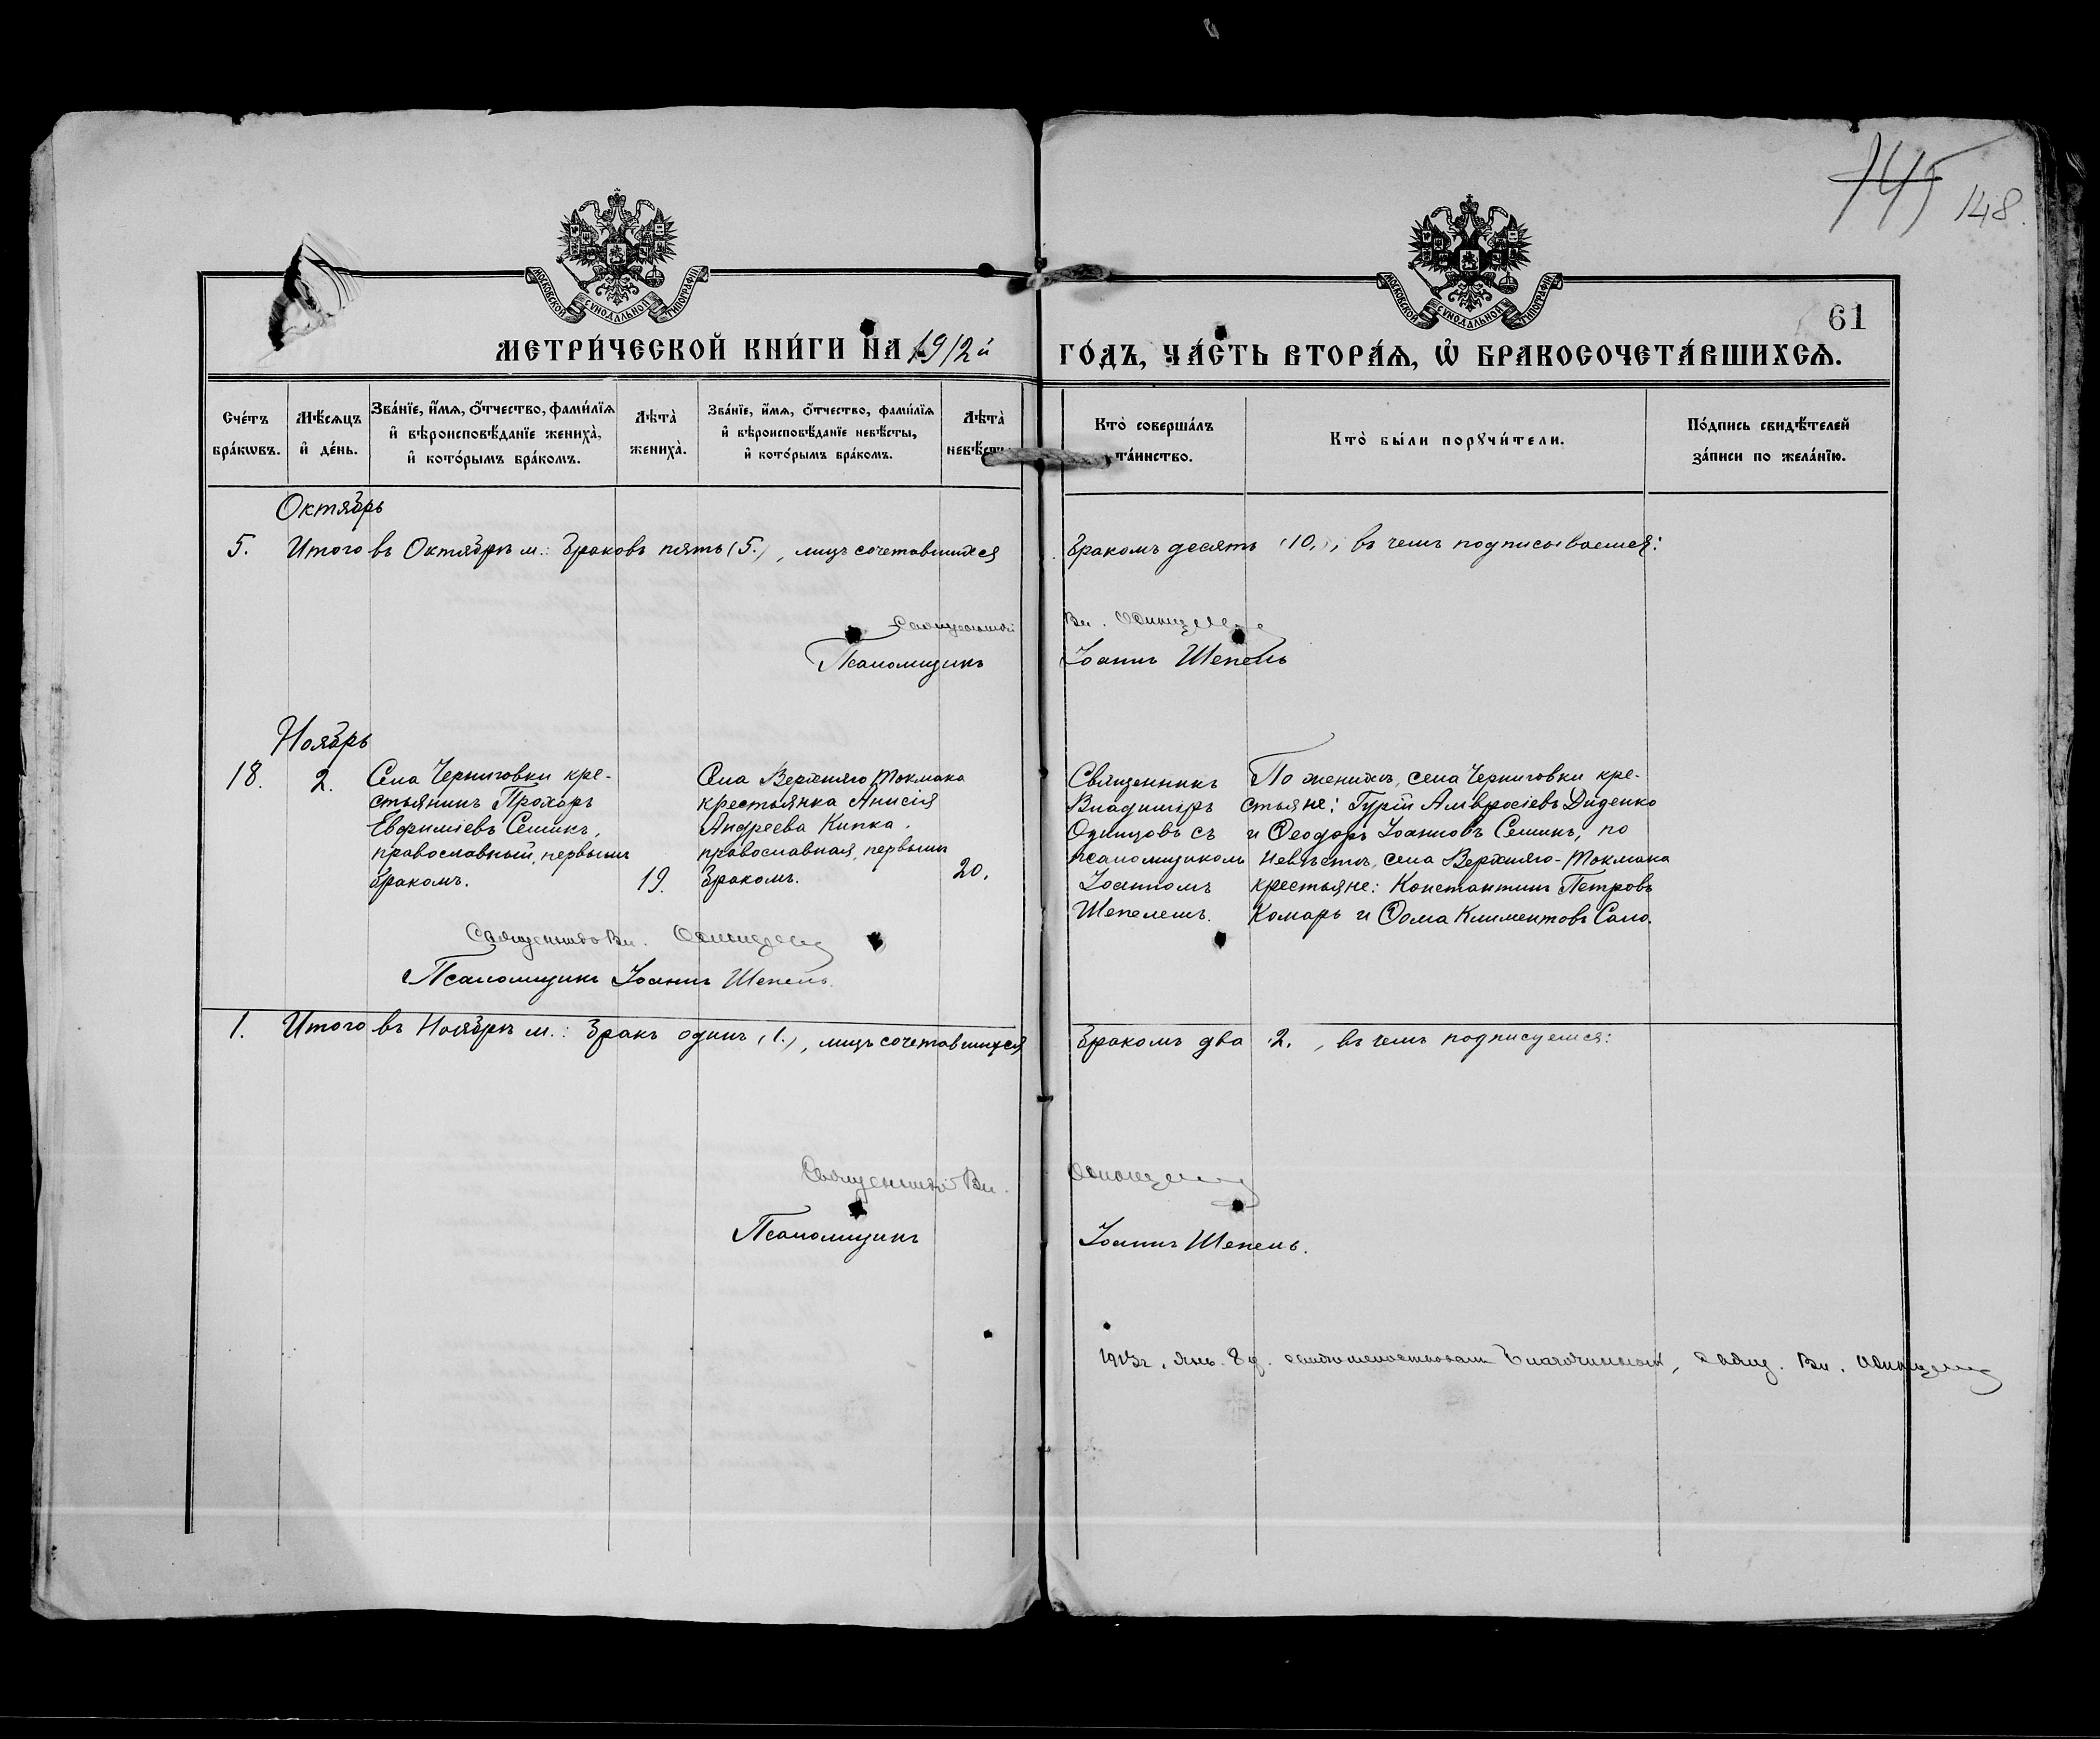 145 148.
МОСКОВСКОЙ СѴНОДАЛЬНОЙ ТИПОГРАФІИ
МОСКОВСКОЙ СѴНОДАЛЬНОЙ ТИПОГРАФІИ
61
МЕТРИ́ЧЕСКОЙ КНИ́ГИ НА 1912й ГО́ДЪ, ЧА́СТЬ ВТОРА́Ѧ, Ѡ҆ БРАКОСОЧЕТА́ВШИХСѦ.
Сче́тъ бра́кѡвъ.
Мѣ́сѧцъ и҆ де́нь.
Зва́нїе, и҆́мѧ, ѻ҆́тчество, фами́лїѧ и҆ вѣроисповѣ́данїе жениха̀, и҆ кото́рымъ бра́комъ.
Лѣта̀ жениха̀.
Зва́нїе, и҆́мѧ, ѻ҆́тчество, фами́лїѧ и҆ вѣроисповѣ́данїе невѣ́сты, и҆ кото́рымъ бра́комъ.
Лѣта̀ невѣ́сты.
Кто̀ соверша́лъ та́инство.
Кто̀ бы́ли порꙋчи́тели.
По́дпись свидѣ́телей за́писи по жела́нїю.
Октябрь
5. Итого въ Октябрѣ м.: браковъ пять (5.), лицъ сочетавшихся бракомъ десять (10.), въ чемъ подписываемся:
Священникъ Вл. Одинцовъ
Псаломщикъ Іоаннъ Шепель
Ноябрь
18. 2.
Села Черниговки кре-
стьянинъ Прохоръ
Евфиміевъ Семикъ,
православный, первымъ
бракомъ.
19.
Села Верхняго Токмака
крестьянка Анисія
Андреева Кипка,
православная, первымъ
бракомъ.
20.
Священникъ
Владиміръ
Одинцовъ съ
псаломщикомъ
Іоанномъ
Шепелемъ.
По женихѣ, села Черниговки кре-
стьяне: Гурій Амвросіевъ Диденко
и Ѳеодоръ Іоанновъ Семикъ, по
невѣстѣ, села Верхняго-Токмака
крестьяне: Константинъ Петровъ
Комаръ и Ѳома Климентовъ Сало.
Священникъ Вл. Одинцовъ
Псаломщикъ Іоаннъ Шепель.
1. Итого въ Ноябрѣ м.: бракъ одинъ (1.), лицъ сочетавшихся бракомъ два 2., въ чемъ подписуемся:
Священникъ Вл. Одинцовъ
Псаломщикъ Іоаннъ Шепель.
1913 г. янв. 8 д. свидѣтельствовалъ Благочинный, свящ. Вл. Одинцовъ